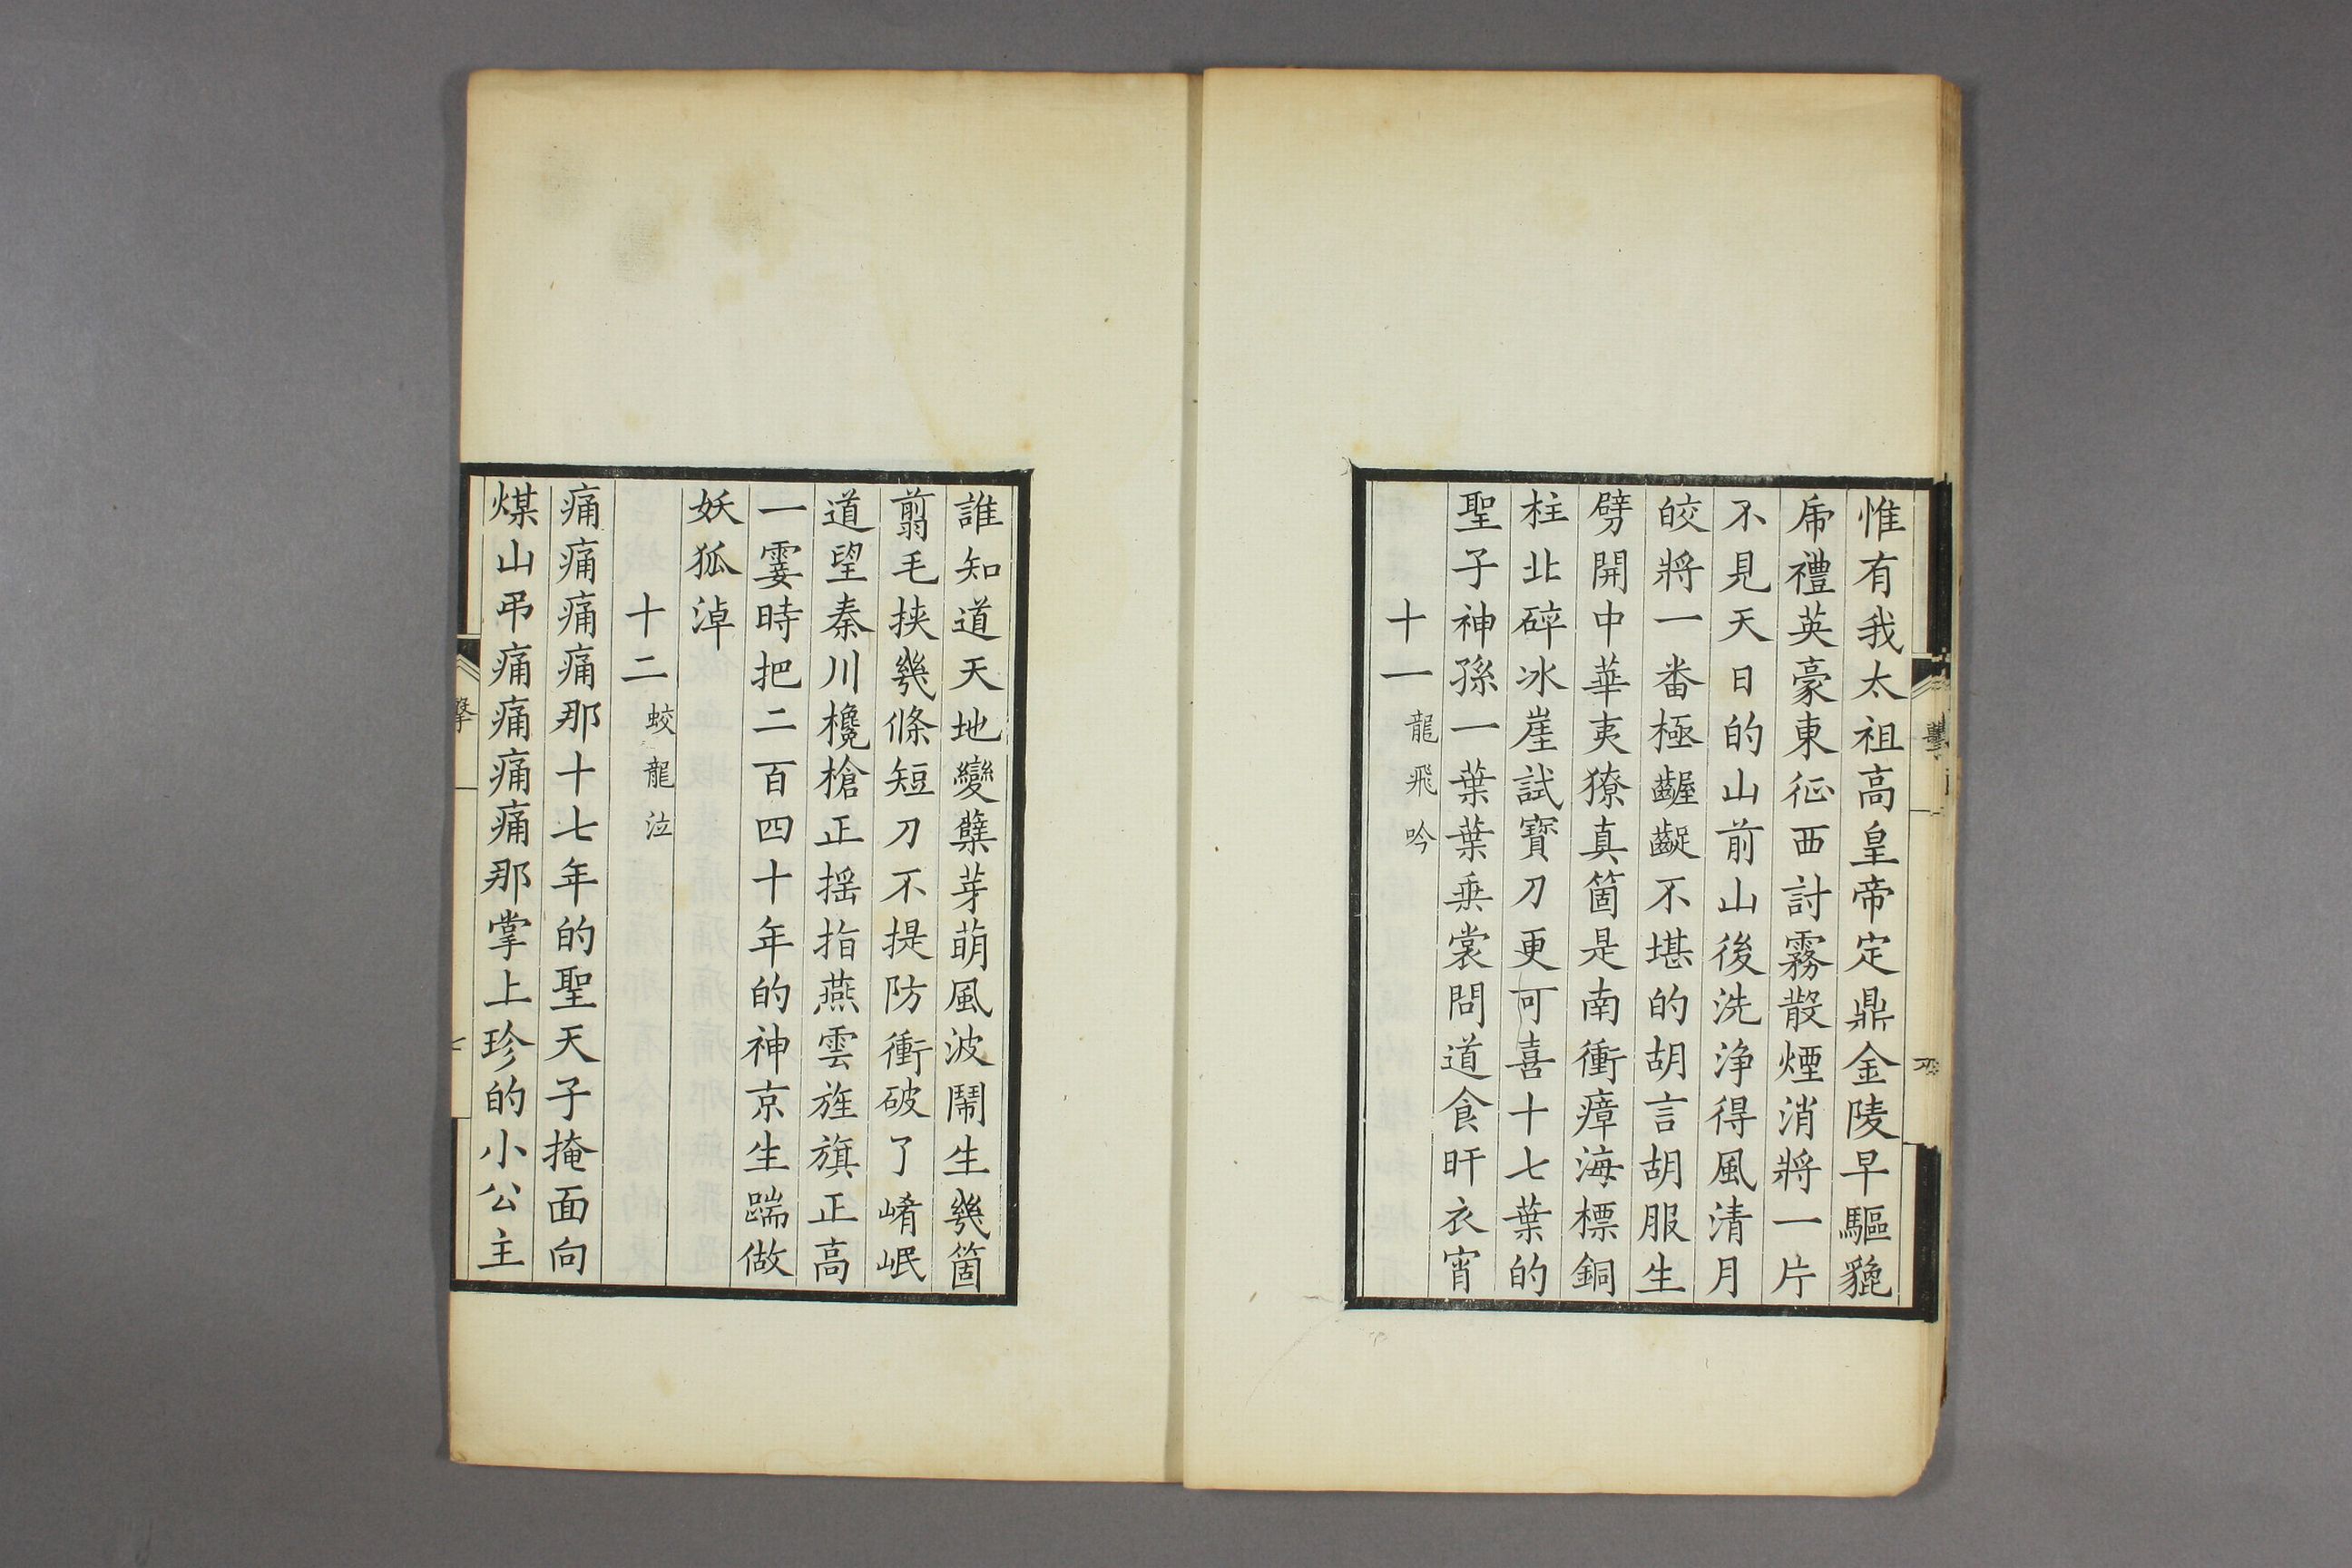 惟有我太祖高皇帝定鼎金陵早驅貔
虎禮英豪東征西討霧散煙消將一片
不見天日的山前山後洗淨得風清月
皎將一番極齷齪不堪的胡言胡服生
劈開中華夷獠真箇是南衝瘴海標銅
柱北碎冰崖試寶刀更可喜十七葉的
聖子神孫一葉葉垂裳問道食旰衣宵
十一 龍飛吟
誰知道天地變孽芽萌風波鬧生幾箇
翦毛挟幾條短刀不提防衝破了崤岷
道望秦川欃槍正摇指燕雲旌旗正高
一霎時把二百四十年的神京生踹做
妖狐淖
十二 蛟龍泣
痛痛痛痛那十七年的聖天子掩面向
煤山弔痛痛痛痛那掌上珍的小公主